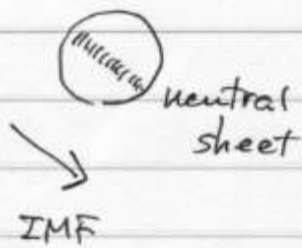 neutral
sheet
IMF